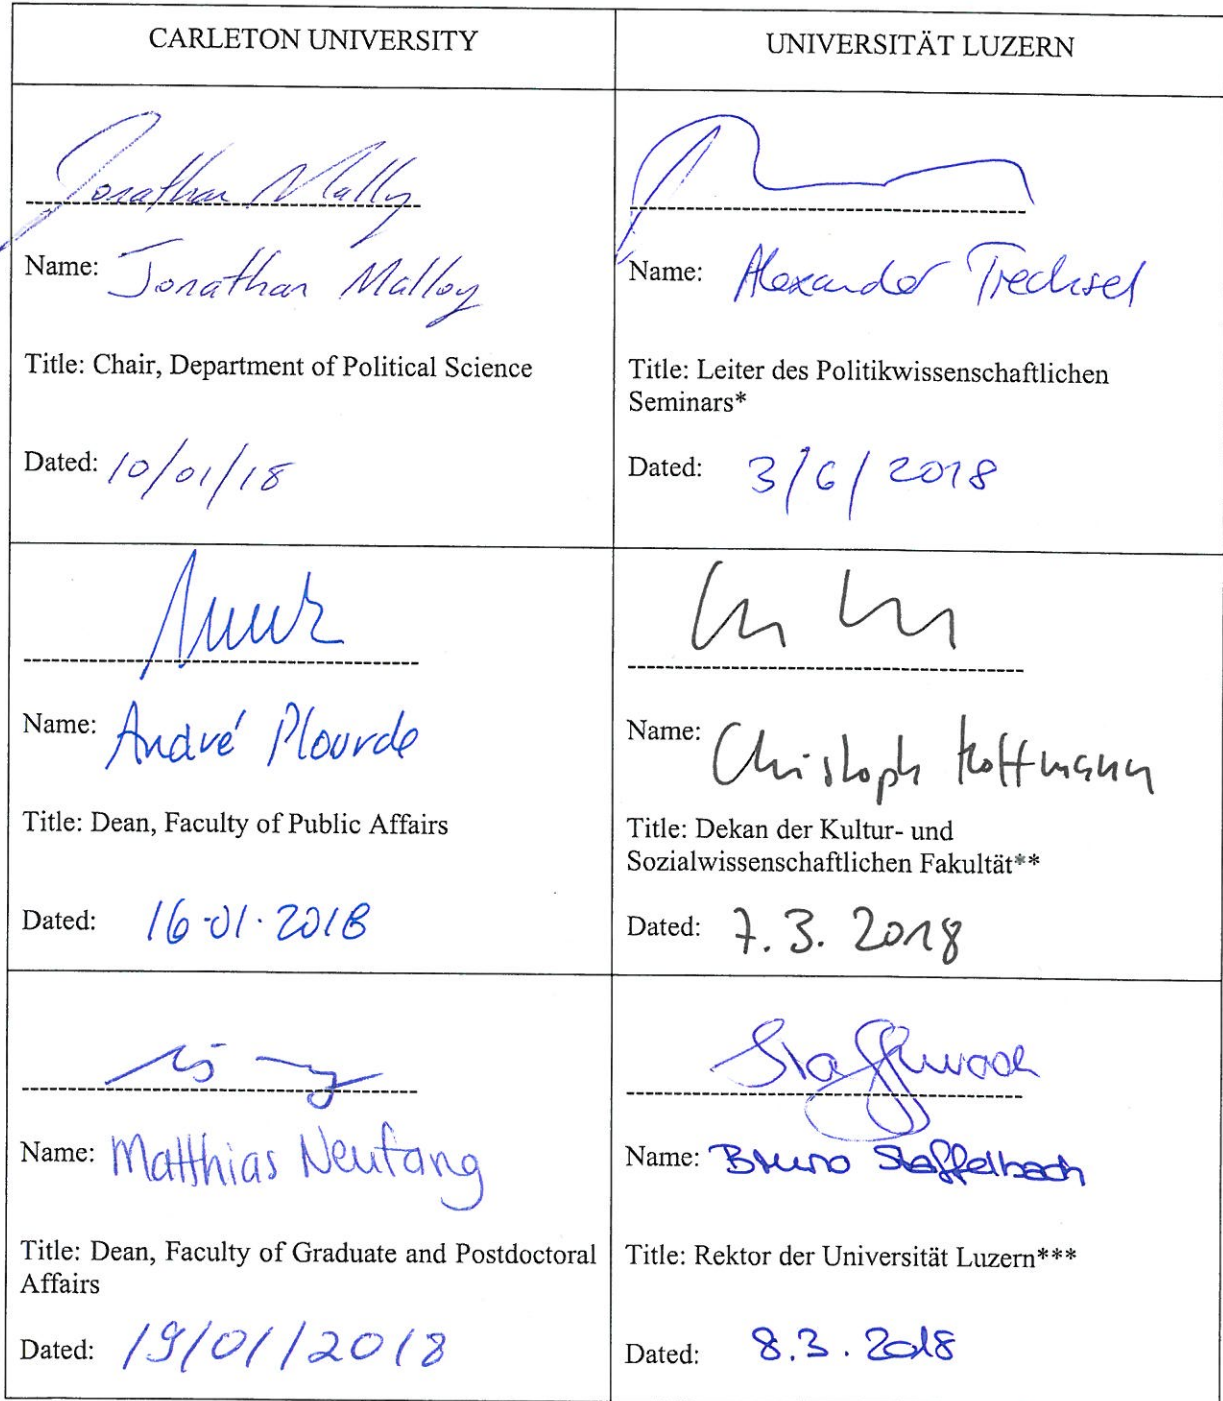 CARLETON UNIVERSITY
UNIVERSITÄT LUZERN
Jonathan Malloy
Name: Jonathan Malloy
Title: Chair, Department of Political Science
Dated: 10/01/18
Name: Alexander Trechsel
Title: Leiter des Politikwissenschaftlichen
Seminars*
Dated: 3/6/2018
Name: André Plourde
Title: Dean, Faculty of Public Affairs
Dated: 16-01-2018
Name: Christoph Hoffmann
Title: Dekan der Kultur- und
Sozialwissenschaftlichen Fakultät**
Dated: 7.3.2018
Name: Matthias Neufang
Title: Dean, Faculty of Graduate and Postdoctoral
Affairs
Dated: 19/01/2018
Name: Bruno Staffelbach
Title: Rektor der Universität Luzern***
Dated: 8.3.2018